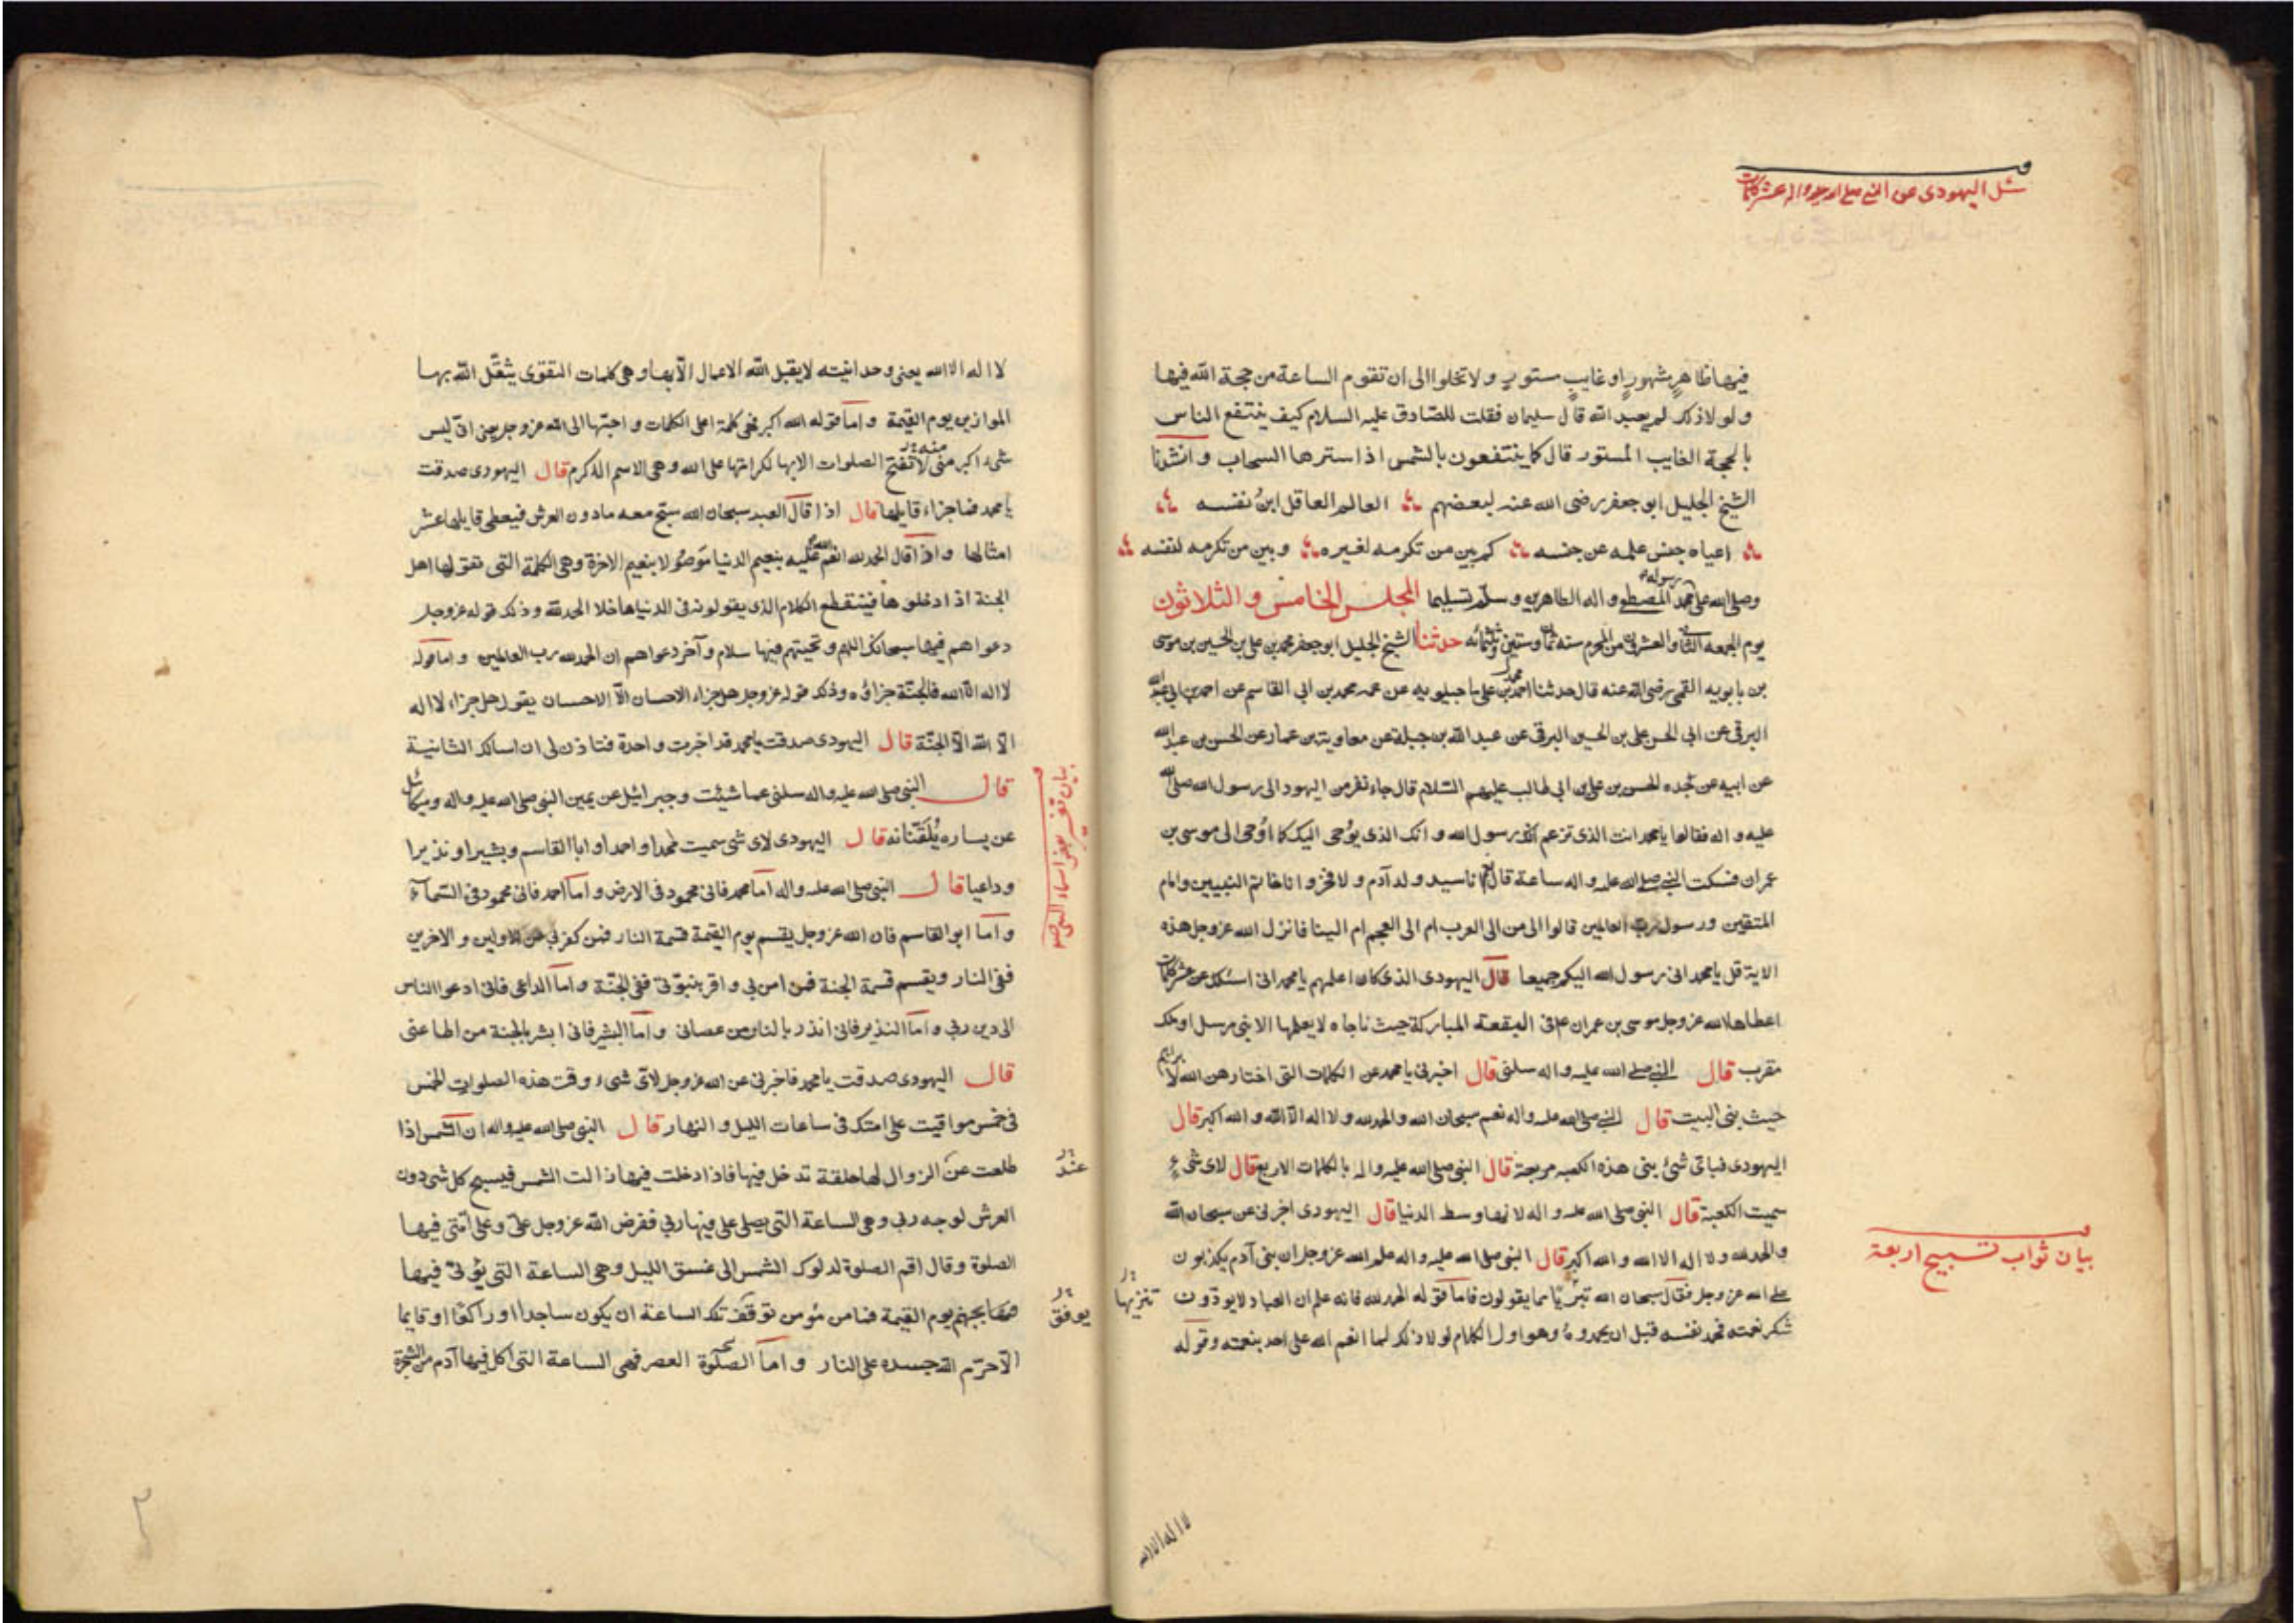 سئل اليهودى عن النبى صلى الله عليه واله عشر كلمات
فيها ظاهرٍ مشهورٍ او غايبٍ مستورٍ ولا تخلوا الى ان تقوم الساعة من حجة الله فيها
ولولا ذلك لم يعبد الله قال سليمان فقلت للصّادق عليه السلام كيف ينتفع الناس
بالحجة الغايب المستور قال كما ينتفعون بالشمس اذا سترها السحاب وانشدنا
الشيخ الجليل ابو جعفر رضى الله عنه لبعضهم العالم العاقل ابنُ نفسه
اغناه جنس علمه عن جنسه كم بين من تكرمه لغيره وبين من تكرمه لنفسه
وصلى الله على رسوله محمد المصطفى واله الطاهرين وسلم تسليما المجلس الخامس والثلاثون
يوم الجمعه الثانى والعشرين من المحرم سنه ثمان وستين وثلثمائه حدثنا الشيخ الجليل ابو جعفر محمد بن على بن الحسين بن موسى
بن بابويه القمى رضى الله عنه قال حدثنا محمد بن على ماجيلويه عن عمه محمد بن ابى القاسم عن احمد بن ابى عبد الله
البرقى عن ابى الحسن على بن الحسين البرقى عن عبد الله بن جبلة عن معاوية بن عمار عن الحسن بن عبد الله
عن ابيه عن جده الحسن بن على بن ابى طالب عليهم السّلام قال جاء نفر من اليهود الى رسول الله صلى الله
عليه واله فقالوا يا محمد انت الذى تزعم انك رسول الله وانك الذى يوُحى اليك كما اوُحى الى موسى بن
عمران فسكت النبى صلى الله عليه واله ساعة ثم قال انا سيد ولد آدم ولا فخر وانا خاتم النبيين وامام
المتقين ورسول رب العالمين قالوا الى من الى العرب ام الى العجم ام الينا فانزل الله عز وجل هذه
الاية قل يا محمد انى رسول الله اليكم جميعا قال اليهودى الذى كان اعلمهم يا محمد انى اسئلك عن عشر كلمات
اعطاها الله عز وجل موسى بن عمران ع فى البقعة المباركة حيث ناجاه لا يعلمها الا نبى مرسل او ملك
مقرب قال النبى صلى الله عليه واله سلنى قال اخبرنى يا محمد عن الكلمات التى اختارهن الله لابراهيم
حيث بنى البيت قال النبى صلى الله عليه واله نعم سبحان الله والحمد لله ولا اله الّا الله والله اكبر قال
اليهودى فباى شئ بنى هذه الكعبه مربعة قال النبى صلى الله عليه واله بالكلمات الاربع قال لاى شىء
سميت الكعبة قال النبى صلى الله عليه واله لانها وسط الدنيا قال اليهودى اخبرنى عن سبحان الله
والحمد لله ولا اله الا الله والله اكبر قال النبى صلى الله عليه واله علم الله عز وجل ان بنى آدم يكذبون
على الله عز وجل فقال سبحان الله تبرّيًا مما يقولون فاما قوله الحمد لله فانه علم ان العباد لا يودّون
شكر نعمته فحمد نفسه قبل ان يحمدوهُ وهو اول الكلام لولا ذلك لما انعم الله على احد بنعمته وقوله
بيان ثواب تسبيح اربعة
تنزيها
لا اله الا الله
لا اله الا الله يعنى وحدانيته لا يقبل الله الاعمال الّا بها وهى كلمات التقوى يثقّل الله بها
الموازين يوم القيمة واما قوله الله اكبر فهى كلمة اعلى الكلمات واحبّها الى الله عز وجل يعنى انّه ليس
شىء اكبر منى لا تفتح الصلوات الا بها لكرامتها على الله وهى الاسم الاكرم قال اليهودى صدقت
منه
يا محمد فما جزاء قايلها قال اذا قال العبد سبحان الله سبّح معه ما دون العرش فيعطى قايلها عشر
امثالها واذا قال الحمد لله انعم الله عليه بنعيم الدنيا موصُولا بنعيم الاخرة وهى الكلمة التى تقولها اهل
الجنة اذا دخلوها فينقطع الكلام الذى يقولونه فى الدنيا ما خلا الحمد لله وذلك قوله عز وجل
دعواهم فيها سبحانك اللهم وتحيتهم فيها سلام وآخر دعواهم ان الحمد لله رب العالمين واما قوله
لا اله الّا الله فالجنّة جزاؤه وذلك قوله عز وجل هل جزاء الاحسان الّا الاحسان يقول هل جزاء لا اله
الّا الله الّا الجنّة قال اليهودى صدقت يا محمد قد اخبرت واحدة فتاذن لى ان اسالك الثانية
قال النبى صلى الله عليه واله سلنى عما شئت وجبرائيل عن يمين النبى صلى الله عليه واله وميكائيل
عن يساره يُلَقّنانه قال اليهودى لاى شى سميت محمدا واحمد او ابا القاسم وبشيرا ونذيرا
وداعيا قال النبى صلى الله عليه واله امّا محمد فانى محمود فى الارض وامّا احمد فانى محمود فى السّماء
وامّا ابو القاسم فان الله عز وجل يقسم يوم القيمة قسمة النار فمن كفر بى من الاولين والاخرين
ففى النار ويقسم قسمة الجنة فمن امن بى واقر بنبوّتى ففى الجنّة وامّا الداعى فانى ادعوا الناس
الى دين ربى وامّا النذير فانى انذر بالنار من عصانى وامّا البشير فانى ابشر بالجنة من اطاعنى
قال اليهودى صدقت يا محمد فاخبرنى عن الله عز وجل لاىّ شىء وقت هذه الصلوات الخمس
فى خمس مواقيت على امتك فى ساعات الليل والنهار قال النبى صلى الله عليه واله ان الشمس اذا
طلعت عن الزوال لها حلقة تدخل فيها فاذا دخلت فيها زالت الشمس فيسبح كل شى دون
العرش لوجه ربى وهى الساعة التى يصلى على فيها ربى ففرض الله عز وجل علىّ وعلى امّتى فيها
الصلوة وقال اقم الصلوة لدلوك الشمس الى غسق الليل وهى الساعة التى يؤتى فيها
بجهنم يوم القيمة فما من مؤمن توقف تلك الساعة ان يكون ساجدا او راكعًا او قايما
الّا حرّم الله جسده على النار وامّا الصّلوة العصر فهى الساعة التى اكل فيها آدم من الشجرة
بيان تفسير بعض اسماء النبى ص
عند
يوفق